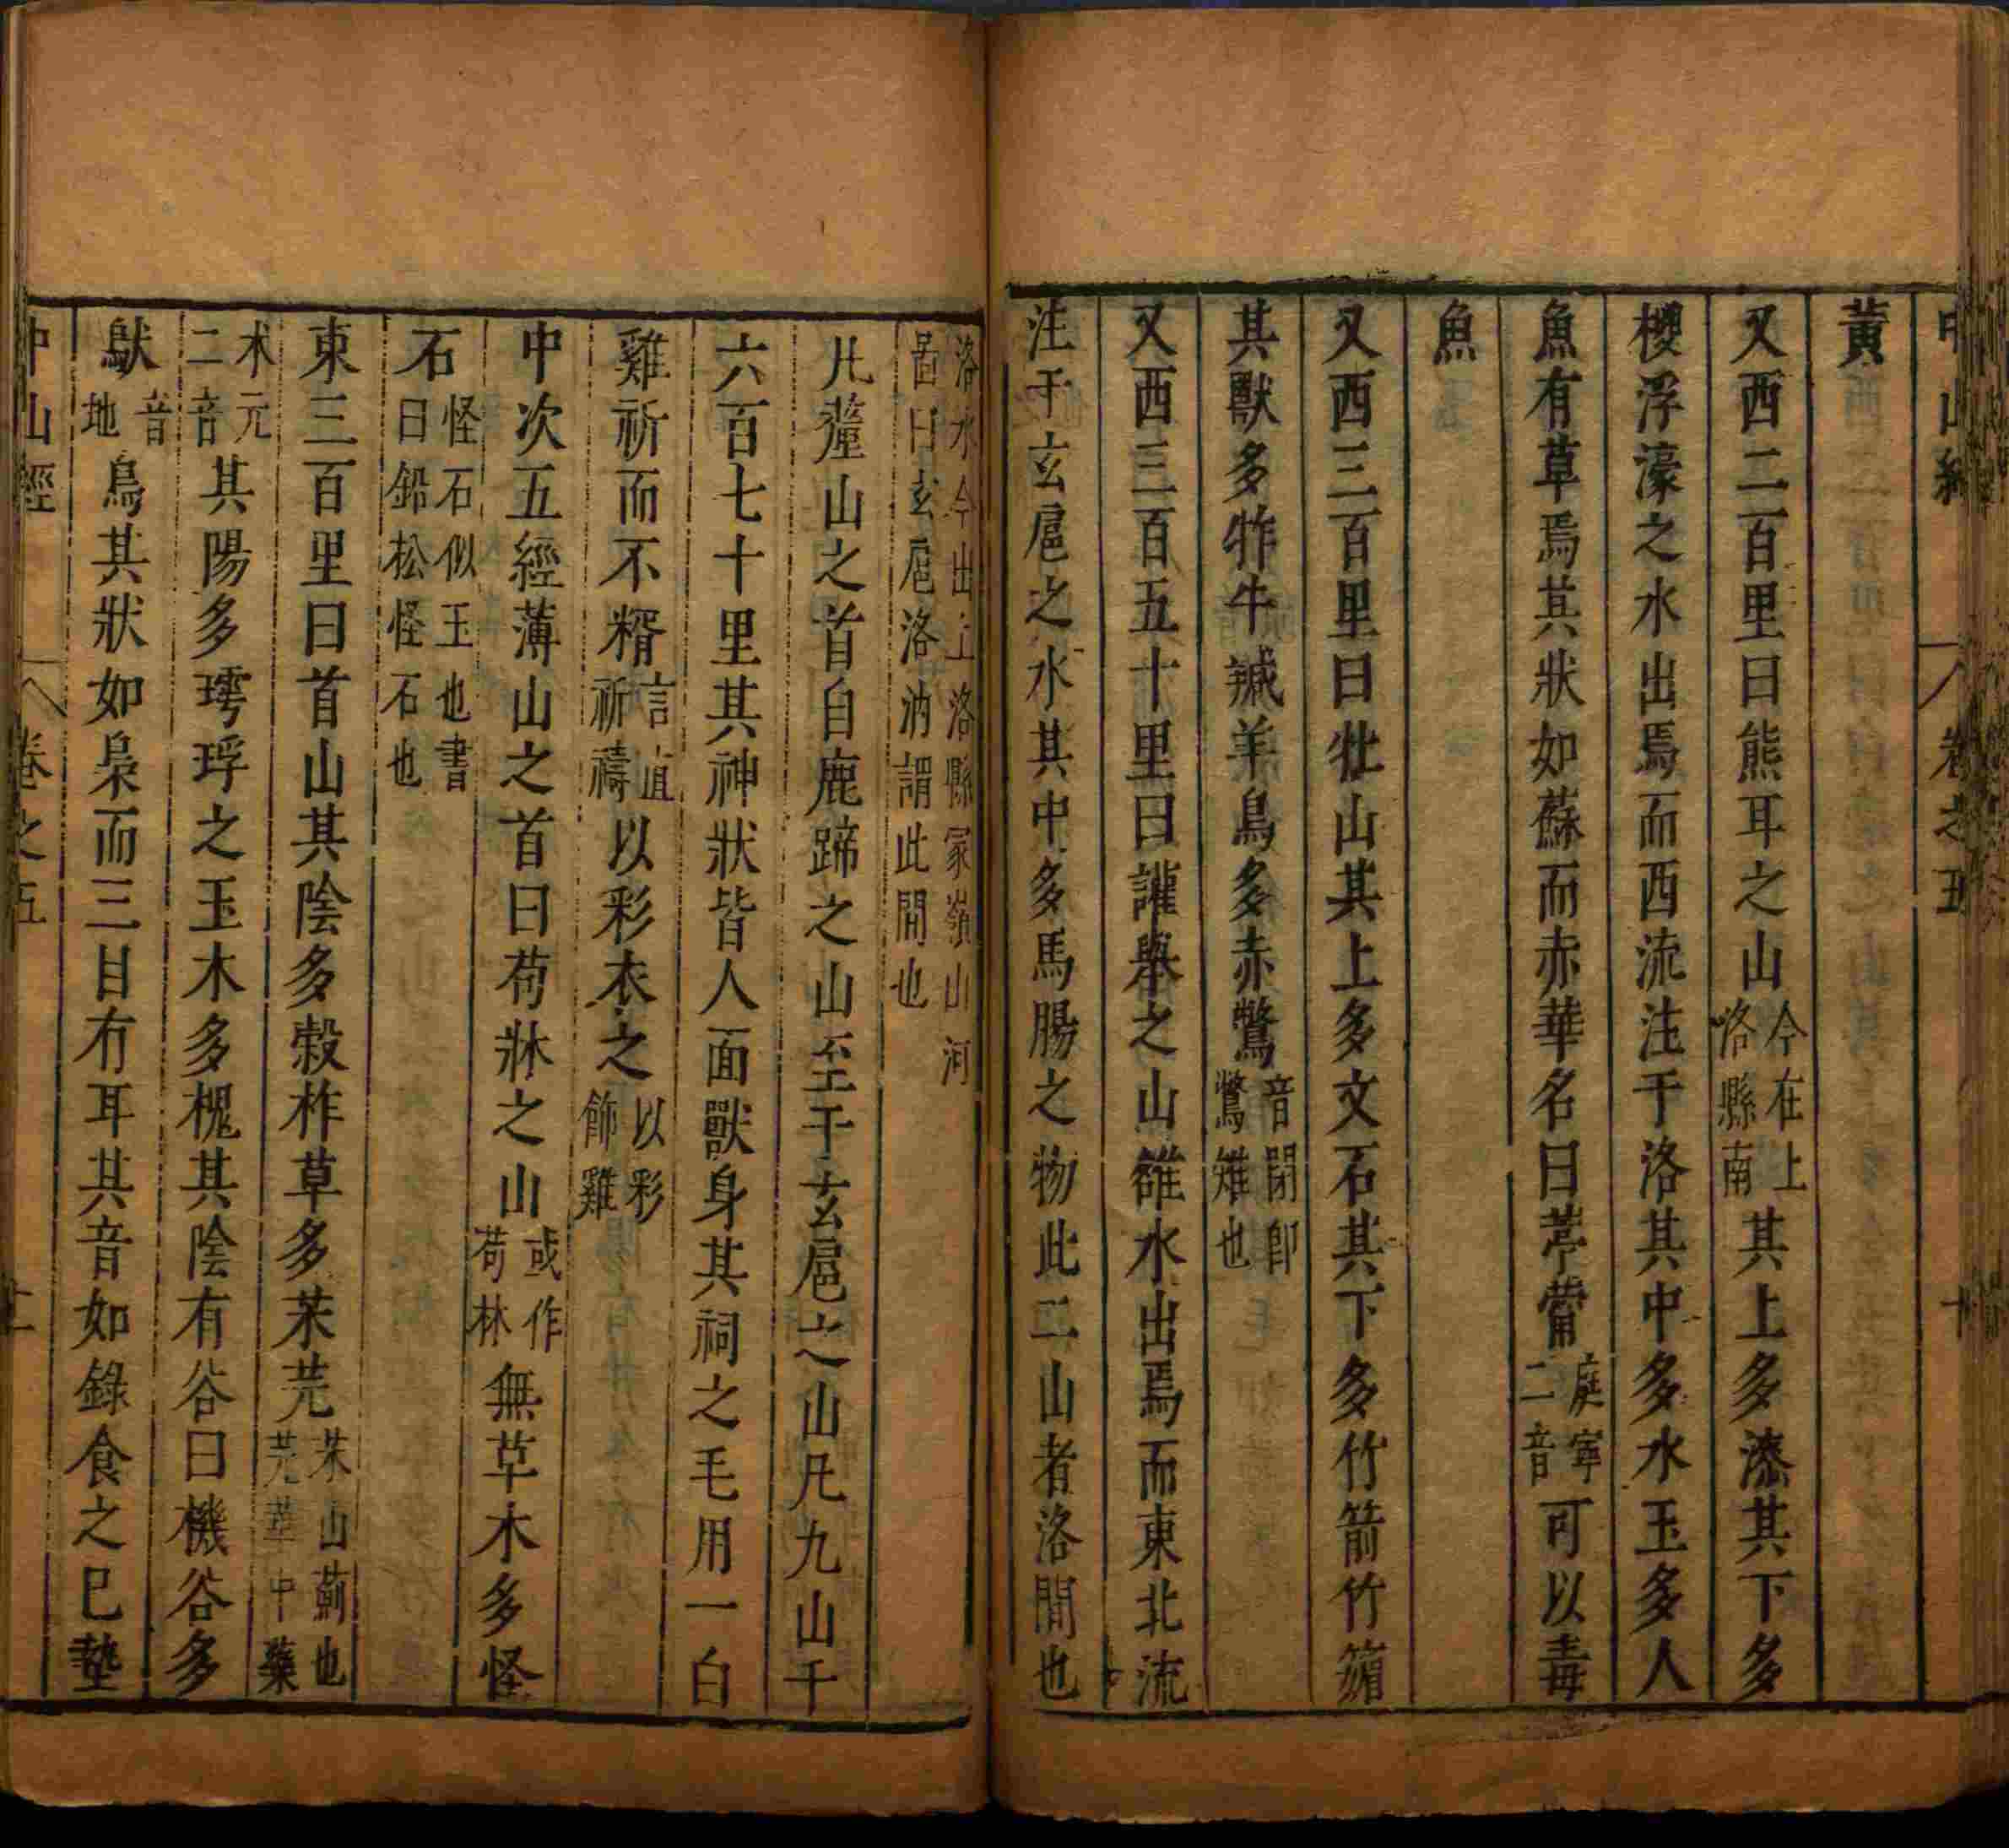 中山經 卷之五 十
黃
又西二百里曰熊耳之山今在上洛縣南其上多漆其下多
椶浮濠之水出焉而西流注于洛其中多水玉多人
魚有草焉其狀如蘇而赤華名曰葶薴庭寧二音可以毒
魚
又西三百里曰牡山其上多文石其下多竹箭竹䉋
其獸多㸲牛羬羊鳥多赤鷩音閉卽鷩雉也
又西三百五十里曰讙舉之山雒水出焉而東北流
注于玄扈之水其中多馬腸之物此二山者洛閒也
洛水今出上洛縣冢嶺山河圖曰玄扈洛汭謂此閒也
凡釐山之首自鹿蹄之山至于玄扈之山凡九山千
六百七十里其神狀皆人面獸身其祠之毛用一白
雞祈而不糈言直祈禱以彩衣之以彩飾雞
中次五經薄山之首曰苟牀之山或作苟林無草木多怪
石怪石似玉也書曰鉛松怪石也
東三百里曰首山其陰多榖柞草多茱芫茱山薊也芫華中藥
其陽多㻬琈之玉木多槐其陰有谷曰機谷多
䲦音地鳥其狀如梟而三目有耳其音如錄食之已墊
中山經 卷之五 十一